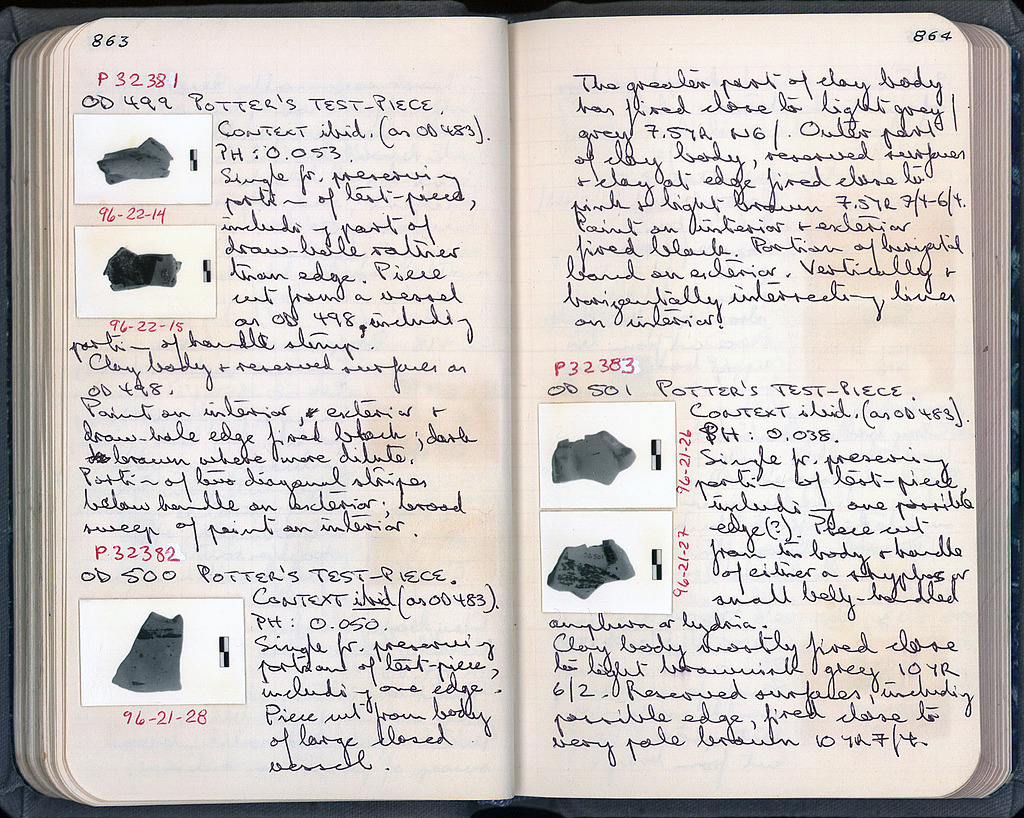 863
P 32381
OD 499 POTTER'S TEST-PIECE.
CONTEXT ibid. (as OD 483).
PH : 0.053
Single fr. preserving
portion of test-piece,
including part of
draw-hole rather
than edge. Piece
cut from a vessel
as OD 498, including
portion of handle stump.
Clay body + reserved surfaces as
OD 498.
Paint on interior, exterior +
draw-hole edge fired black; dark
brown where more dilute.
Portion of two diagonal stripes
below handle on exterior; broad
sweep of paint on interior.
96-22-14
96-22-15
P 32382
OD 500 POTTER'S TEST-PIECE.
CONTEXT ibid (as OD 483).
PH : 0.050.
Single fr. preserving
portion of test-piece,
including one edge.
Piece cut from body
of large closed
vessel.
96-21-28
864
The greater part of clay body
has fired close to light grey /
grey 7.5YR N6/. Outer part
of clay body, reserved surfaces
+ clay at edge fired close to
pink + light brown 7.5YR 7/4-6/4.
Paint on interior + exterior
fired black. Portion of horizontal
band on exterior. Vertically +
horizontally intersecting lines
on interior.
P 32383
OD 501 POTTER'S TEST-PIECE.
CONTEXT ibid. (as OD 483).
PH : 0.038.
Single fr. preserving
portion of test-piece
including one possible
edge(?). Piece cut
from the body + handle
of either a skyphos or
small belly-handled
amphora or hydria.
Clay body mostly fired close
to light brownish grey 10YR
6/2. Reserved surfaces, including
possible edge, fired close to
very pale brown 10YR 7/4.
96-21-26
96-21-27